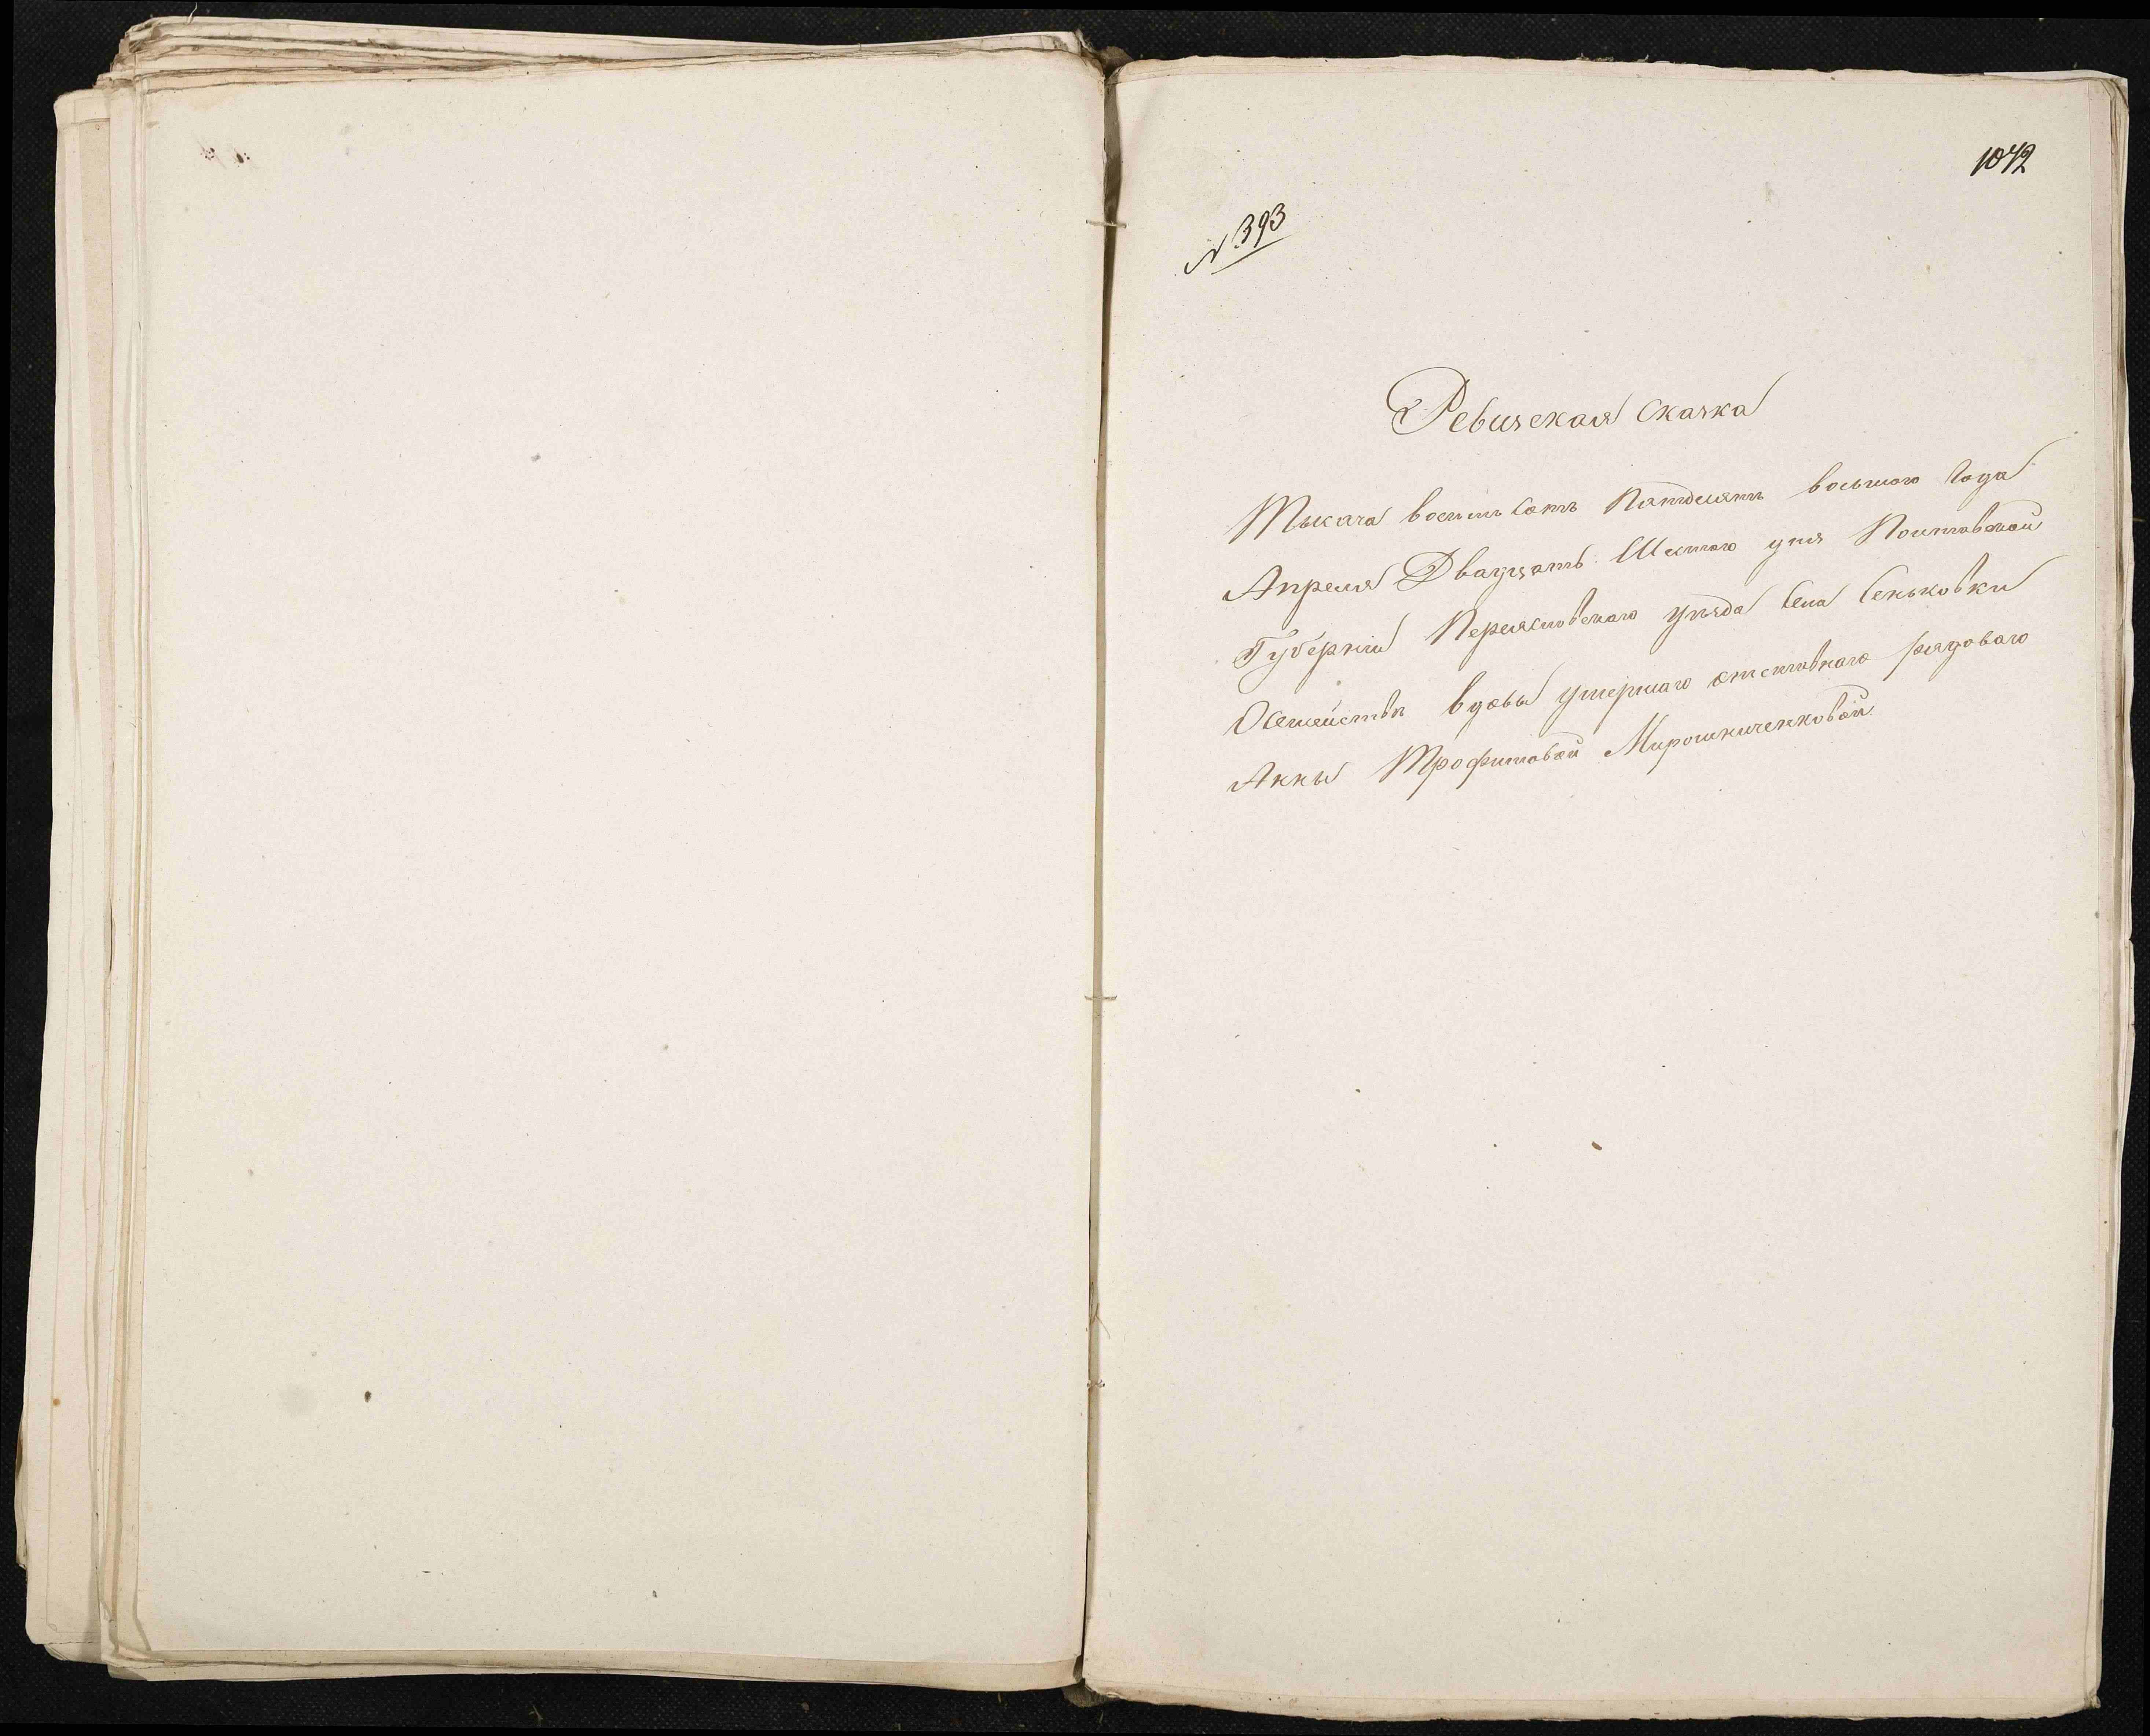 1042
№ 393
Ревизская Сказка
Тысяча восемь сотъ Пятдесятъ восьмаго Года
Апреля Двадцать Шестаго дня Полтавской
Губерніи Переяславскаго уѣзда села Сеньковки
О семействѣ вдовы умершаго отставнаго рядоваго
Анны Трофимовой Мирошниченковой